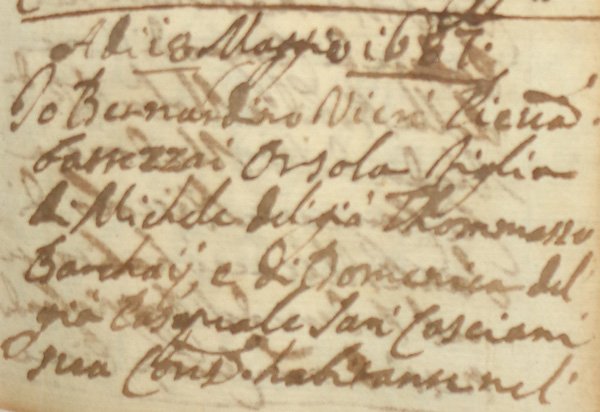 Adi 18 Maggio 1687.
Io Bernardino Vieri Pievan
battezzai Orsola figlia
di Michele del già Thommasso
Barchaij, e di Domenica del
già Pasquale San Casciani
sua Cons.e habitante nel